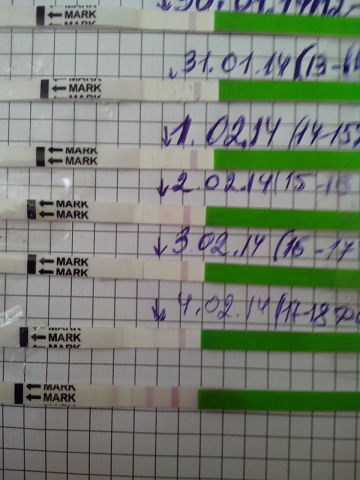 30.01.14
MARK
MARK
31.01.14 (13-
MARK
MARK
1.02.14 (14-15
MARK
MARK
2.02.14 (15-16
MARK
MARK
3.02.14 (16-17
MARK
MARK
4.02.14 (17-18
MARK
MARK
MARK
MARK